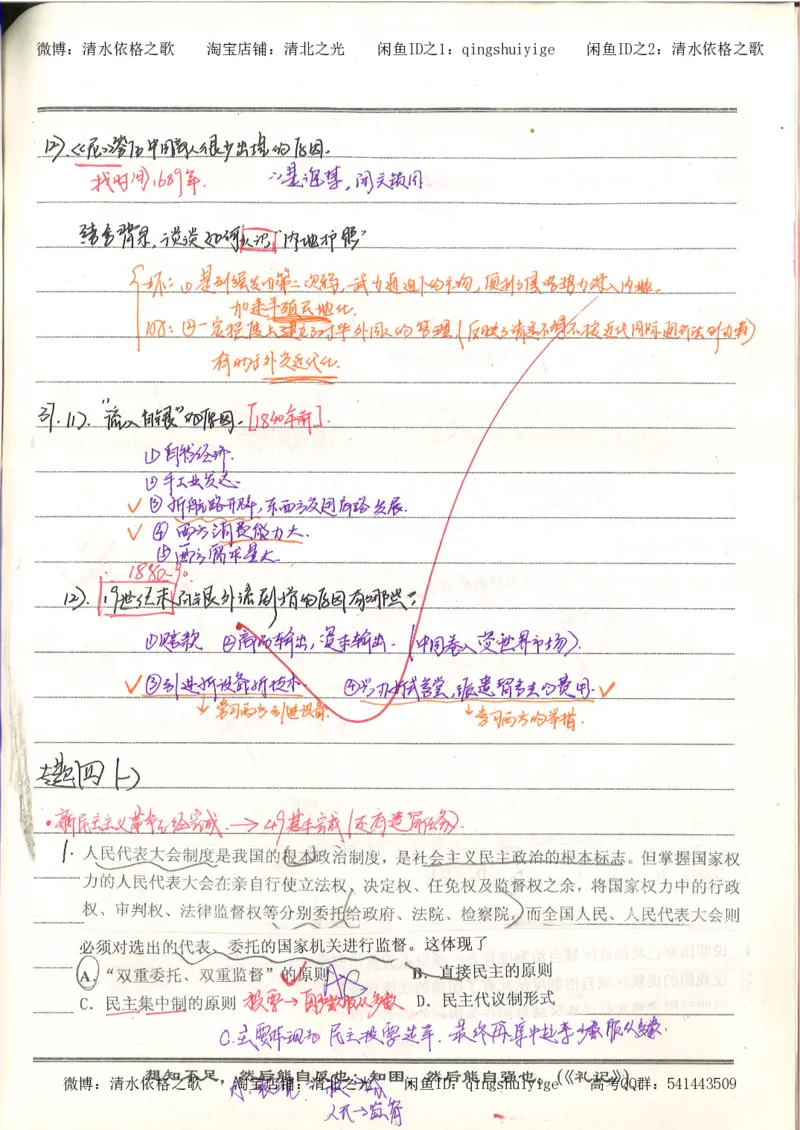 微博：清水依格之歌 淘宝店铺：清北之光 闲鱼ID之1：qingshuiyige 闲鱼ID之2：清水依格之歌
(2).《尼》签后中国商人很少出境的原因.
找时间,1689年. ∵是海禁,闭关锁国
结合背景,谈谈如何认识"内地护照"
坏：①是列强发动第二次鸦,武力逼迫下的产物,便利了侵略势力深入内地。
加速半殖民地化.
②一定程度上建立了对华外国人的管理(反映了清要不得不按近代国际通行法则办事)
有助于外交近代化.
3).(1)."流入白银"的原因.[1840年前].
①自然经济.
②手工业发达.
✓③新航路开辟,东西方贸易商路发展.
✓④西方消费能力大.
⑤西方需求量大.
1880~90
(2).19世纪末白银外流剧增的原因有哪些?
①赔款 ②商品输出,资本输出.(中国卷入资世界市场).
✓③引进新设备新技术 ④兴办新式学堂,派遣留学生的费用.✓
↓学习西方引进设备. ↓学习西方的举措.
专题四(一)
•新民主主义革命已经完成.→49基本完成(还有遗留任务).
1. 人民代表大会制度是我国的根本政治制度，是社会主义民主政治的根本标志。但掌握国家权
力的人民代表大会在亲自行使立法权、决定权、任免权及监督权之余，将国家权力中的行政
权、审判权、法律监督权等分别委托给政府、法院、检察院，而全国人民、人民代表大会则
必须对选出的代表、委托的国家机关进行监督。这体现了
A. "双重委托、双重监督"的原则 AC B. 直接民主的原则
C. 民主集中制的原则 投票→再少数服从多数 D. 民主代议制形式
C.主要体现为 民主投票选举.最终再集中起来少数服从多数.
想知不足，然后能自反也；知困，然后能自强也。(《礼记》)
微博：清水依格之歌 淘宝店铺：清北之光 闲鱼ID：qingshuiyige 高考QQ群：541443509
人民→监督